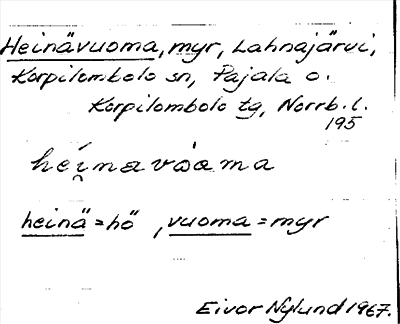 Heinävuoma, myr, Lahnajärvi,
Korpilombolo sn, Pajala o.
Korpilombolo tg, Norrb. l.
195
heinä = hö, vuoma = myr
Eivor Nylund 1967.